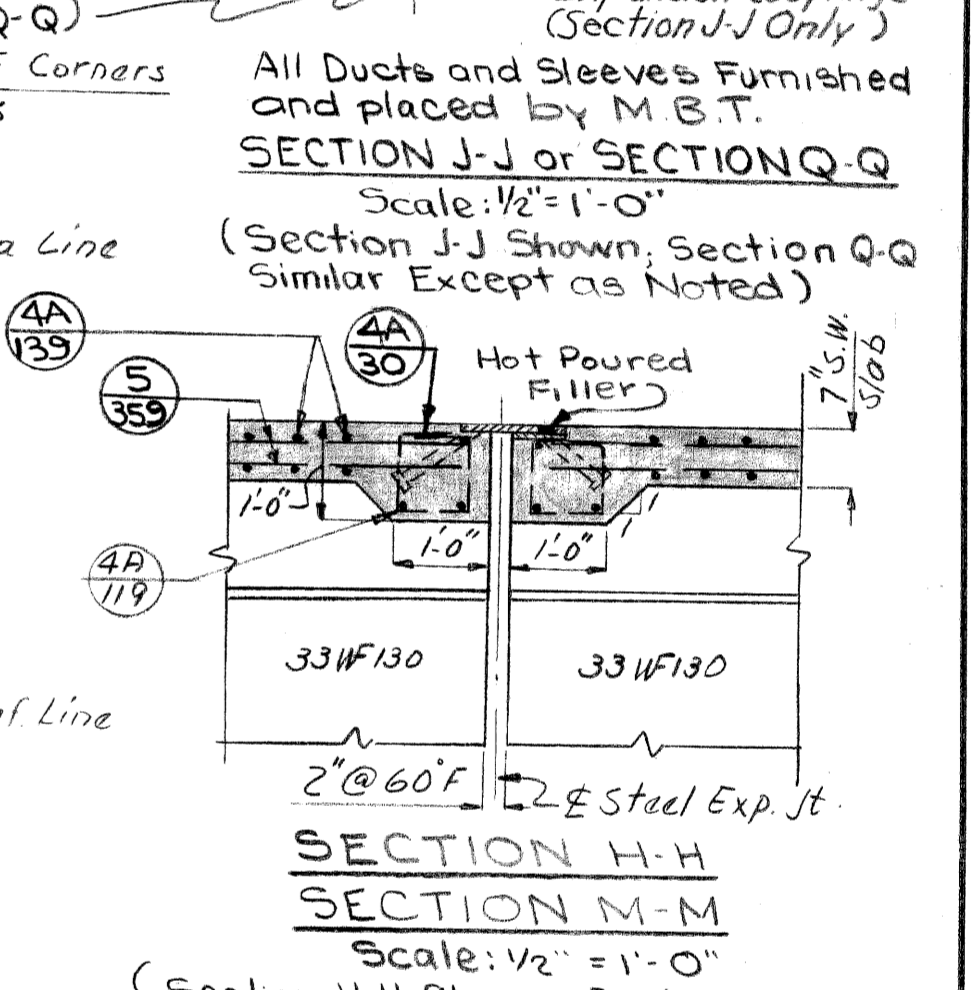 Q-Q)
(Section J-J Only)
Corners
All Ducts and Sleeves Furnished
and placed by M.B.T.
SECTION J-J or SECTION Q-Q
Scale: 1/2"=1'-0"
a Line
(Section J-J Shown; Section Q-Q
Similar Except as Noted)
4A
139
4A
30
5
359
Hot Poured
Filler
7" S.W.
Slab
1'-0"
1'-0"
1'-0"
1
1
4A
119
33WF130
33WF130
f. Line
2"@60°F
℄ Steel Exp. Jt.
SECTION H-H
SECTION M-M
Scale: 1/2" = 1'-0"